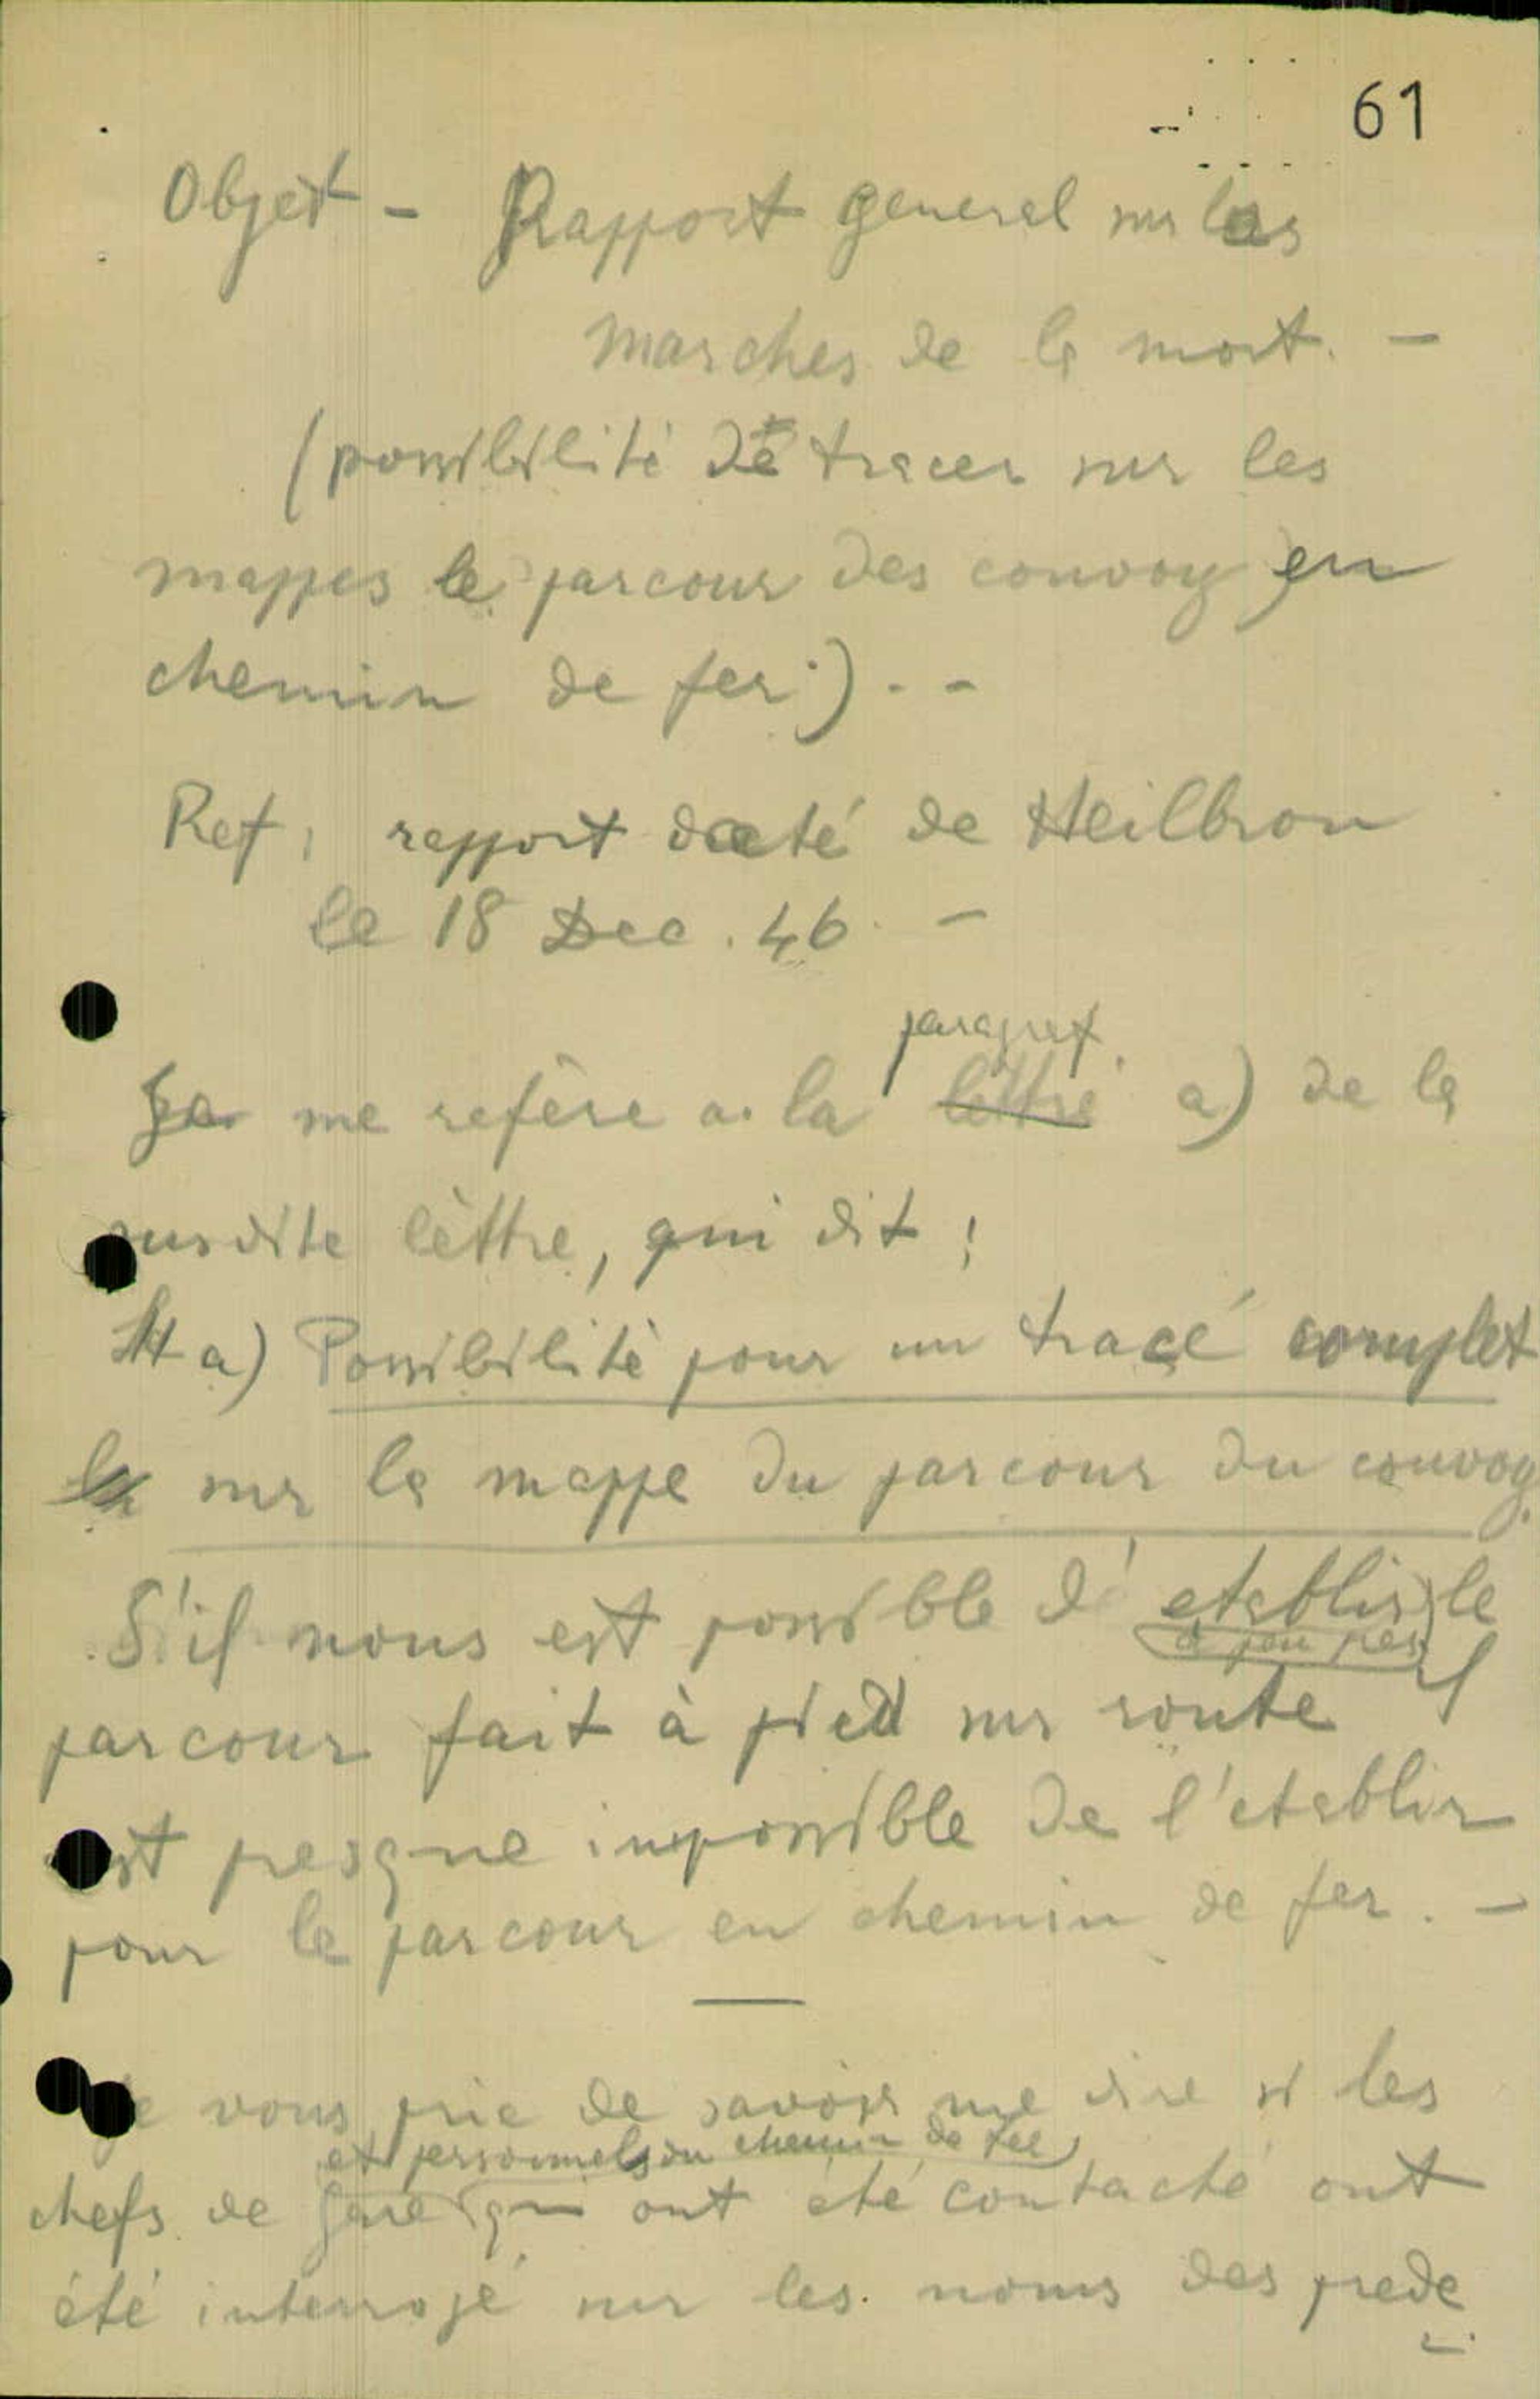 61
Objet - Rapport general sur les
marches de la mort. -
(possibilité de tracer sur les
mappes le parcour des convoy en
chemin de fer). -
Ref: rapport daté de Heilbron
le 18 Dec. 46. -
paragraf
Je me refère a la lettre a) de la
susdite lèttre, qui dit:
a) Possibilité pour un tracé complet
sur la mappe du parcour du convoy.
S'il nous est possible d'etablir le
à peu pès
parcour fait à pied sur route
est presque impossible de l'etablir
pour le parcour en chemin de fer. -
Je vous prie de savoir me dire si les
et personnels du chemin de fer
chefs de gare qui ont été contacté ont
été interrogé sur les noms des prede